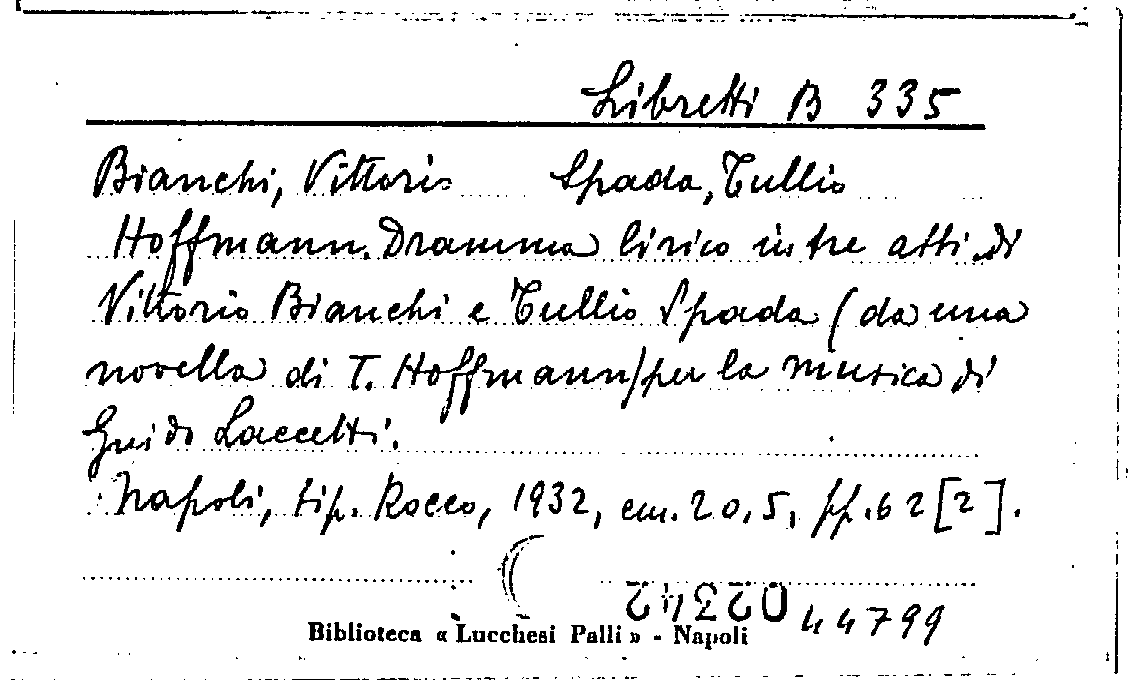 Libretti B 335
Bianchi, Vittorio Spada, Tullio
Hoffmann. Dramma lirico in tre atti di
Vittorio Bianchi e Tullio Spada (da una
novella di T. Hoffmann) per la musica di
Guido Laccetti.
Napoli, tip. Rocco, 1932, cm. 20,5, pp. 62 [2].
022342
44799
Biblioteca « Lucchesi Palli » - Napoli